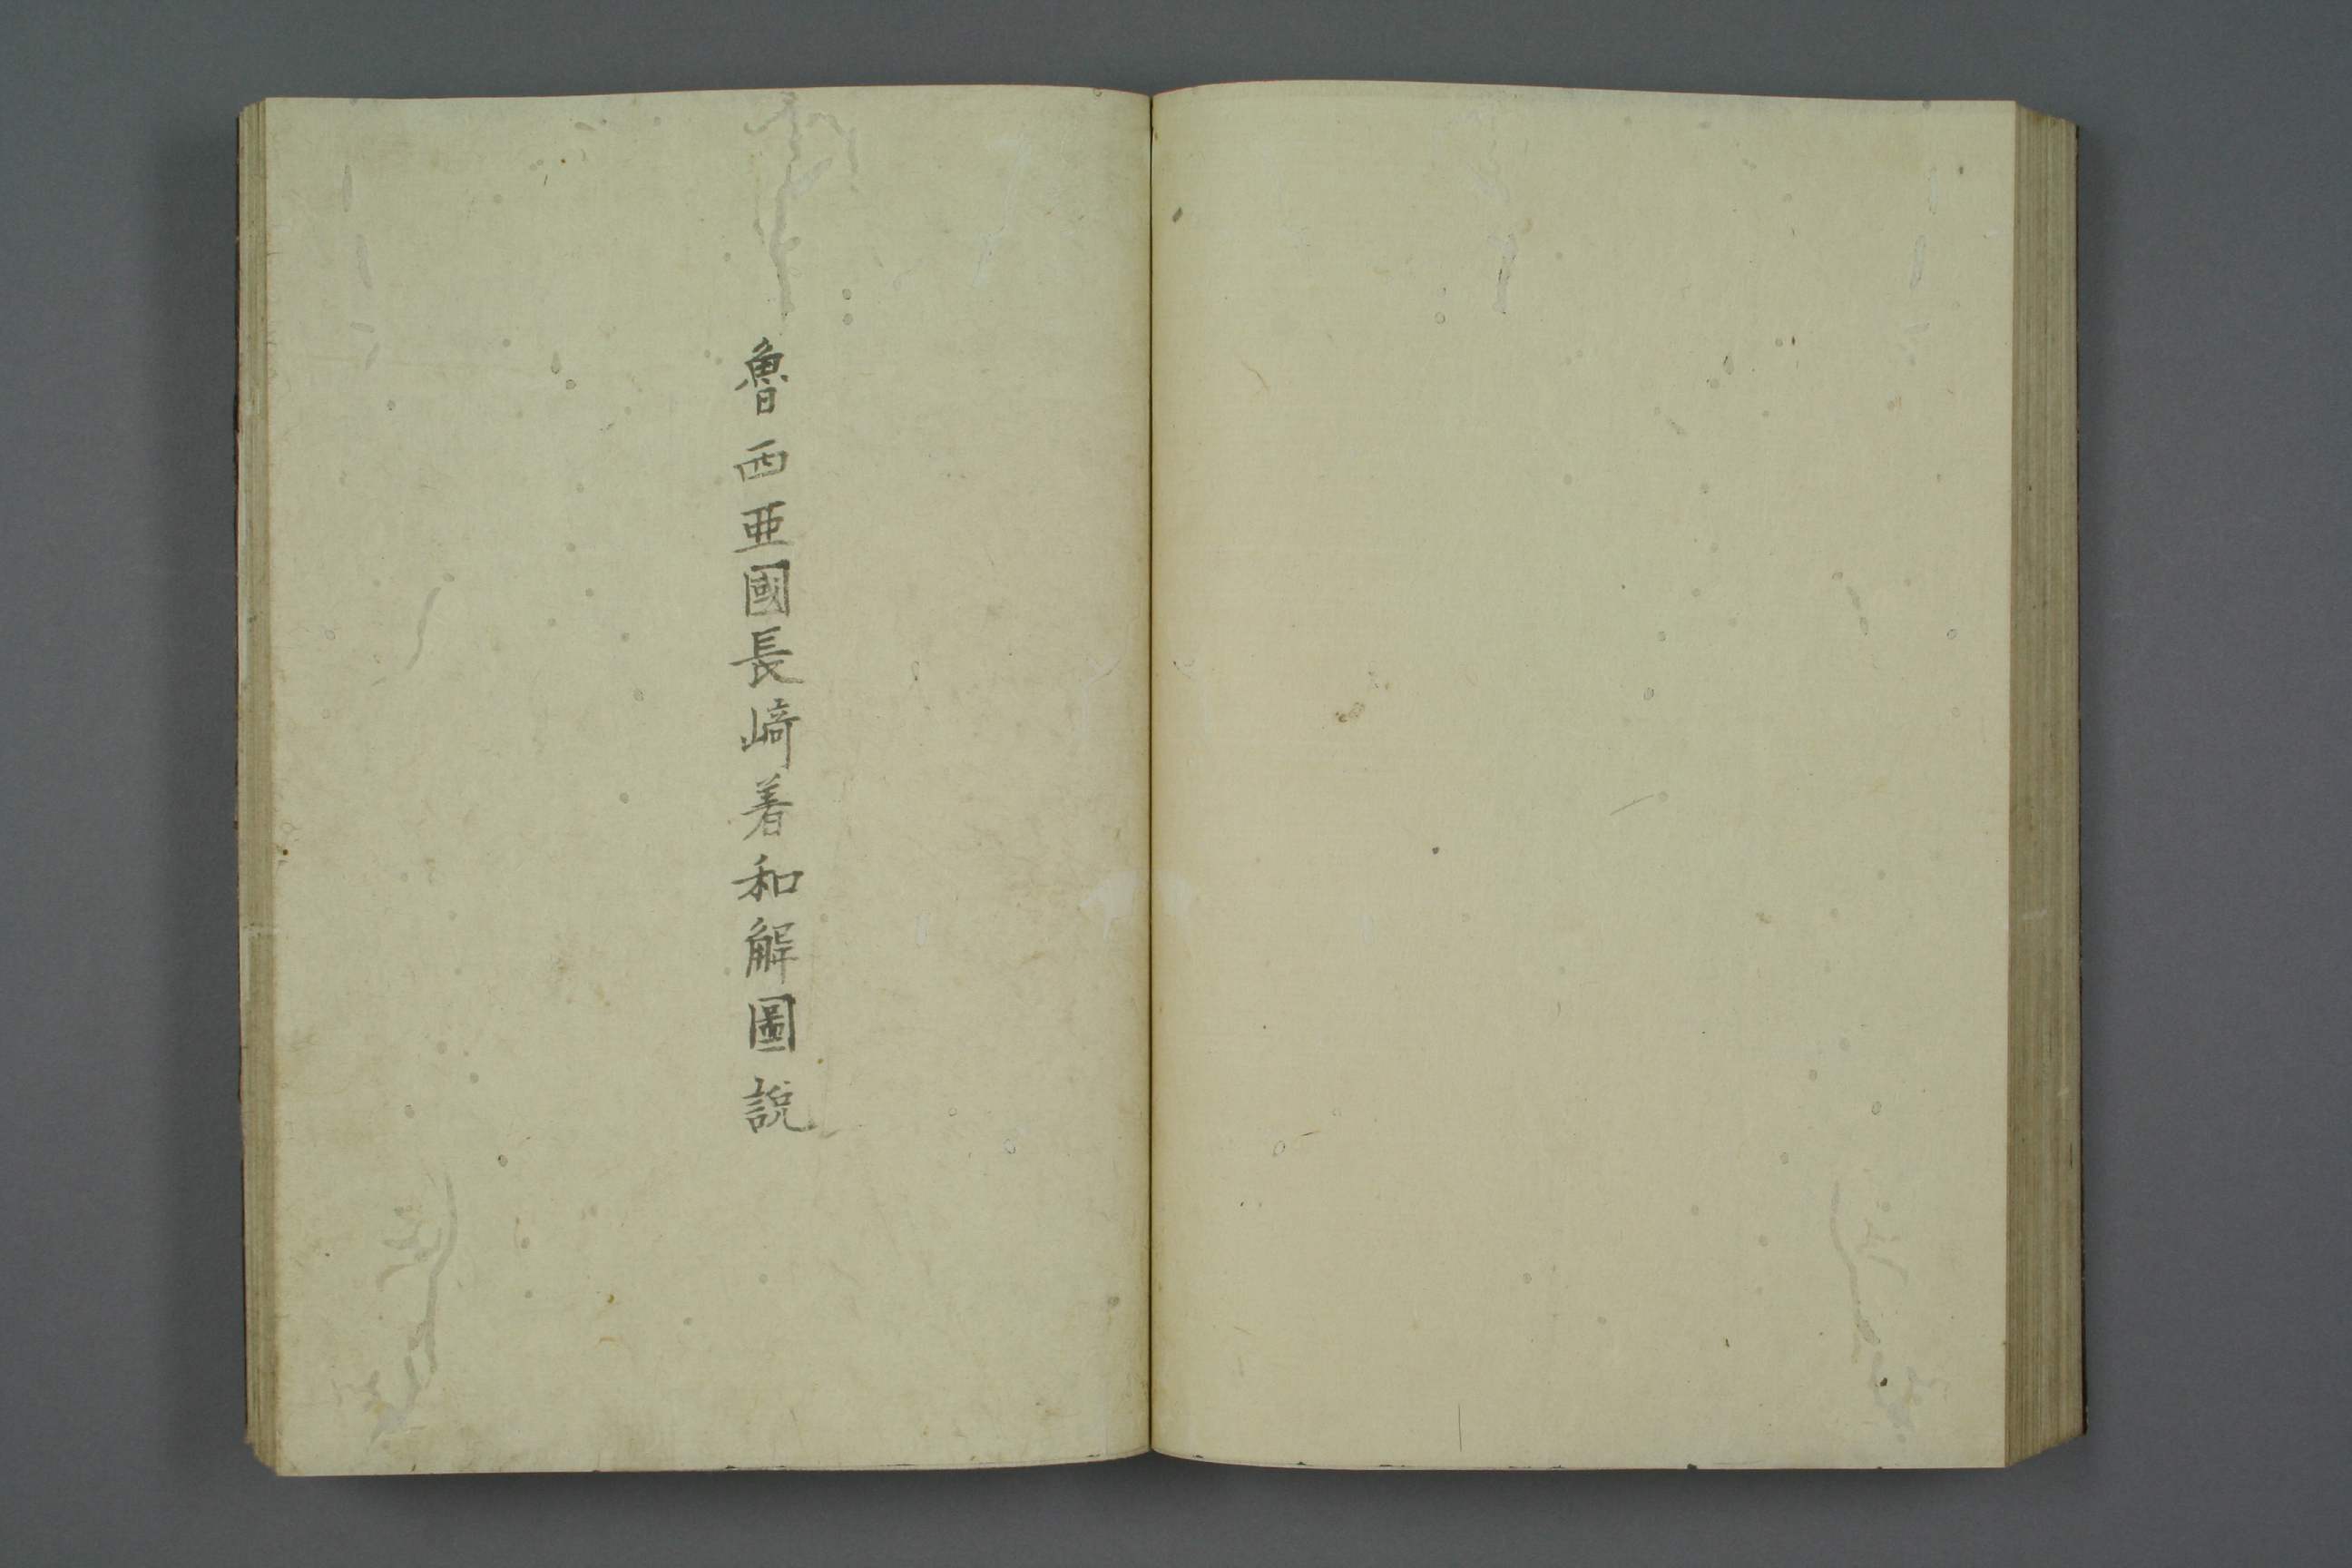 魯西亜國長﨑着和解圖説